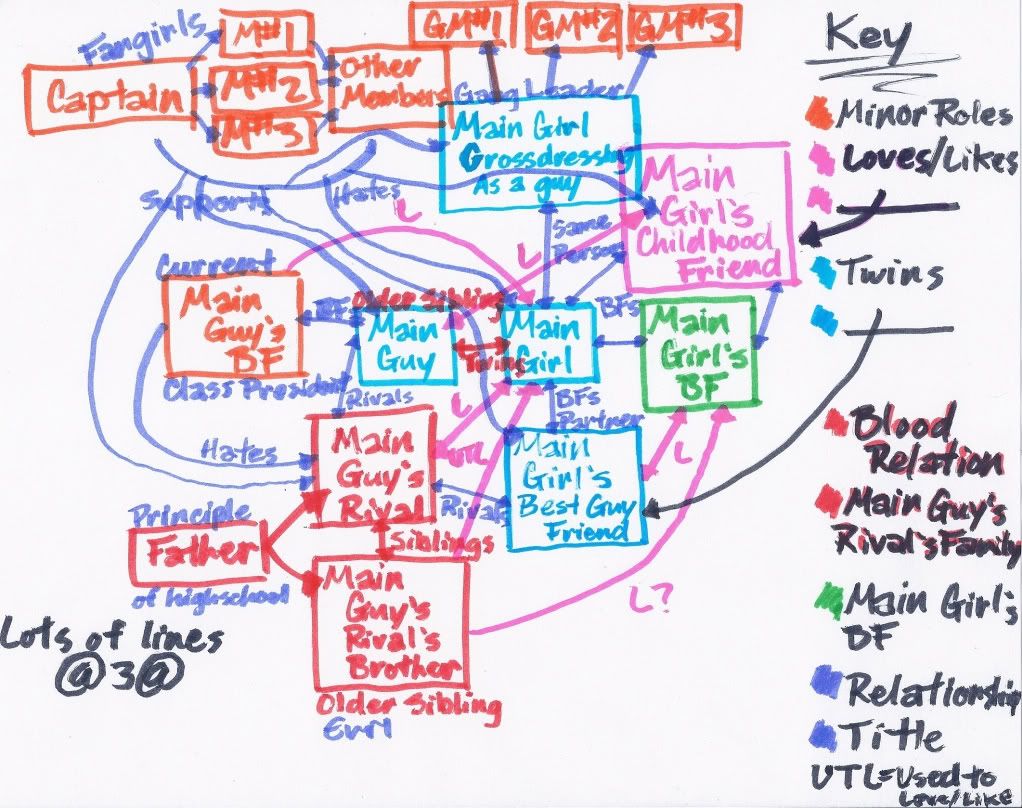 Fangirls
Captain
M#1
M#2
M#3
Other
Members
GM#1
GM#2
GM#3
Gang Leader
Main Girl
Grossdressing
As a guy
Main
Girl's
Childhood
Friend
Supports
Hates
L
L
Same
Person
Current
Main
Guy's
BF
Class President
BFs
Older Sibling
Main
Guy
Twins
Main
Girl
BFs
Main
Girl's
BF
Rivals
L
UTL
BFs
Partner
Hates
Main
Guy's
Rival
Rivals
Main
Girl's
Best Guy
Friend
L
Principle
Father
of highschool
Siblings
Main
Guy's
Rival's
Brother
Older Sibling
L?
Lots of lines
@3@
Key
Minor Roles
Loves/Likes
Twins
Blood
Relation
Main Guy's
Rival's Family
Main Girl's
BF
Relationship
Title
UTL=Used to
Love/Like